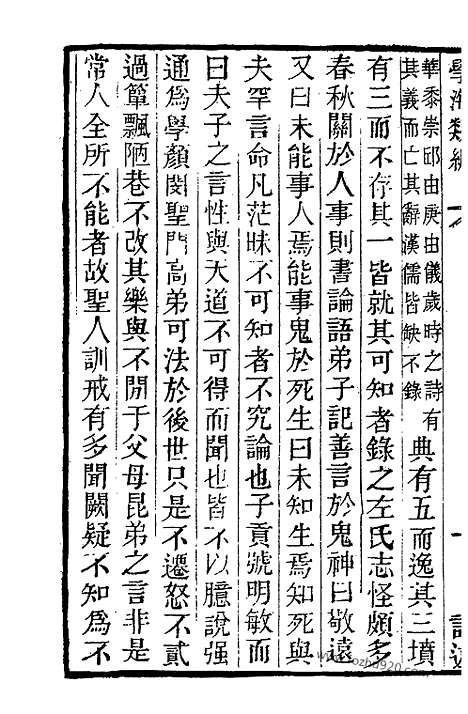 學海類編
華黍崇邱由庚由儀歲時之詩有
其義而亡其辭漢儒皆缺不錄
典有五而逸其三墳
有三而不存其一皆就其可知者錄之左氏志怪頗多
春秋關於人事則書論語弟子記善言於鬼神曰敬遠
又曰未能事人焉能事鬼於死生曰未知生焉知死與
夫罕言命凡茫昧不可知者不究論也子貢號明敏而
曰夫子之言性與天道不可得而聞也皆不以臆說强
通為學顏閔聖門高弟可法於後世只是不遷怒不貳
過簞瓢陋巷不改其樂與不閒于父母昆弟之言非是
常人全所不能者故聖人訓戒有多聞闕疑不知為不